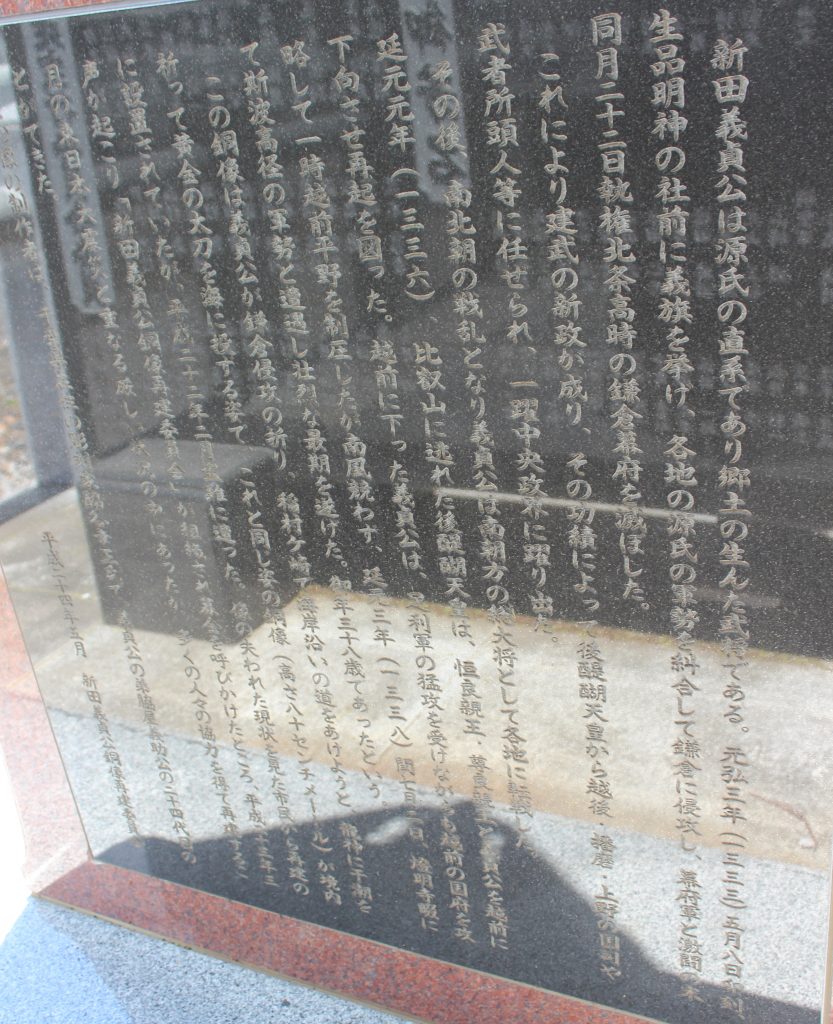 新田義貞公は源氏の直系であり郷土の生んだ武将である。元弘三年(一三三三)五月八日卯刻
生品明神の社前に義旗を挙げ、各地の源氏の軍勢を糾合して鎌倉に侵攻し、幕府軍と激闘の末
同月二十二日執権北条高時の鎌倉幕府を滅ぼした。
これにより建武の新政が成り、その功績によって後醍醐天皇から越後・播磨・上野の国司や
武者所頭人等に任せられ、一躍中央政界に躍り出た。
その後、南北朝の戦乱となり義貞公は南朝方の総大将として各地に転戦した。
延元元年(一三三六) 比叡山に逃れた後醍醐天皇は、恒良親王・尊良親王と義貞公を越前に
下向させ再起を図った。越前に下った義貞公は、足利軍の猛攻を受けながらも越前の国府を攻
略して一時越前平野を制圧したが南風競わず、延元三年(一三三八)閏七月二日、燈明寺畷に
て斯波高経の軍勢と遭遇し壮烈な最期を遂げた。御年三十八歳であったという。
この銅像は義貞公が鎌倉侵攻の折り、稲村ケ崎で海岸沿いの道をあけようと、龍神に干潮を
祈って黄金の太刀を海に投ずる姿で、これと同じ姿の銅像(高さ八十センチメートル)が境内
に設置されていたが、平成二十二年二月盗難に遭った。像の失われた現状を見た市民から再建の
声が起こり「新田義貞公銅像再建委員会」が組織され募金を呼びかけたところ、平成二十三
月の東日本大震災と重なる厳しい状況の中にあったが、多くの人々の協力を得て再建するこ
とができた。
義貞公の弟脇屋義助公の二十四代目の
平成二十四年五月 新田義貞公銅像再建委員会